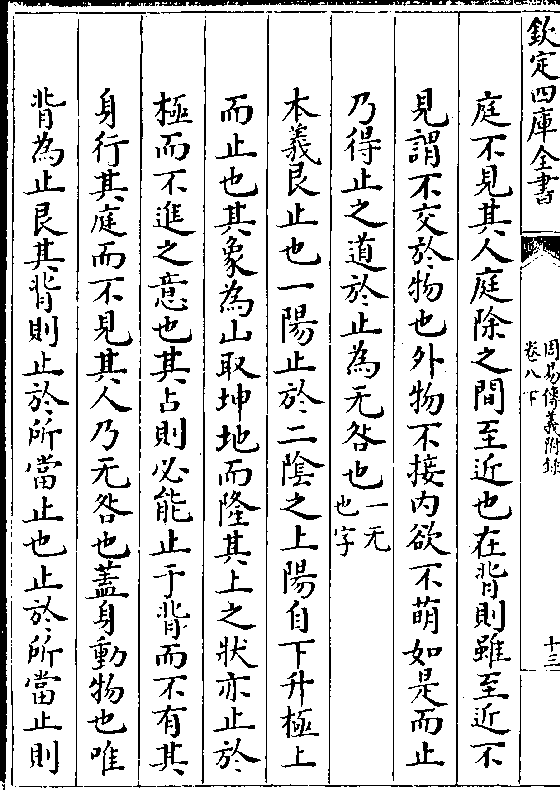 欽定四庫全書
周易傳義附錄
卷八下
十三
庭不見其人庭除之間至近也在背則雖至近不
見謂不交於物也外物不接内欲不萌如是而止
乃得止之道於止為无咎也一无
也字
本義艮止也一陽止於二陰之上陽自下升極上
而止也其象為山取坤地而隆其上之狀亦止於
極而不進之意也其占則必能止于背而不有其
身行其庭而不見其人乃无咎也蓋身動物也唯
背為止艮其背則止於所當止也止於所當止則